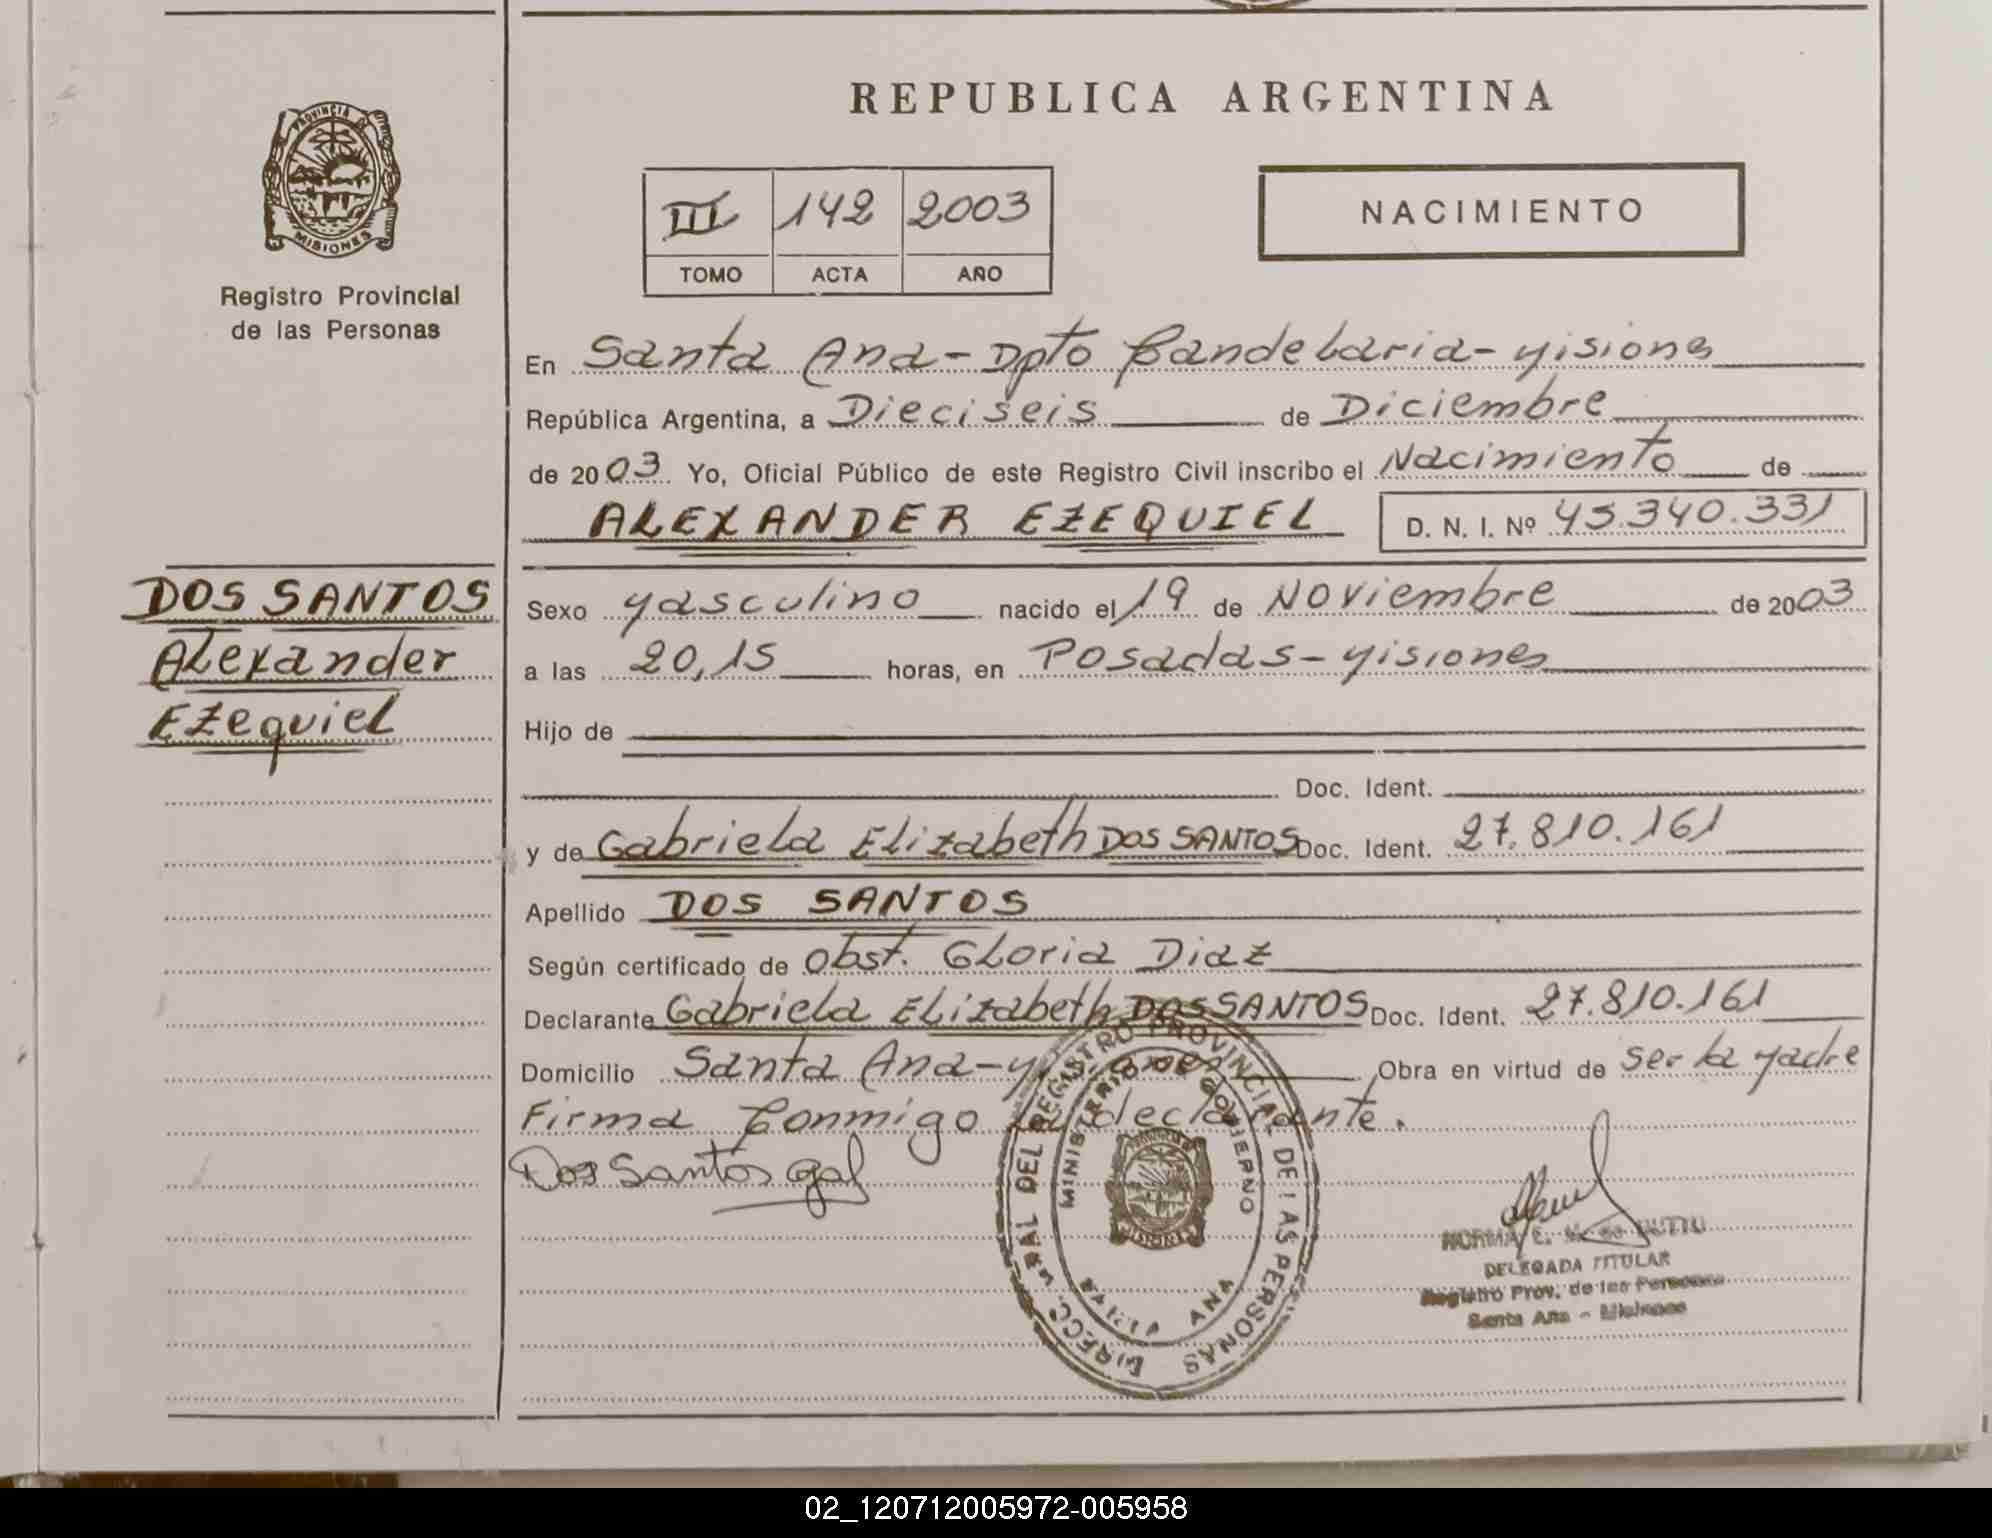 REPUBLICA ARGENTINA
PROVINCIA DE
MISIONES
Registro Provincial
de las Personas
III 142 2003
TOMO ACTA AÑO
NACIMIENTO
En Santa Ana - Dpto Candelaria - Misiones
República Argentina, a Dieciseis de Diciembre
de 2003 Yo, Oficial Público de este Registro Civil inscribo el Nacimiento de
ALEXANDER EZEQUIEL D. N. I. Nº 45.340.331
DOS SANTOS
Alexander
Ezequiel
Sexo Masculino nacido el 19 de Noviembre de 2003
a las 20,15 horas, en Posadas - Misiones
Hijo de
Doc. Ident.
y de Gabriela Elizabeth DOS SANTOS Doc. Ident. 27.810.161
Apellido DOS SANTOS
Según certificado de Obst. Gloria Diaz
Declarante Gabriela Elizabeth DOS SANTOS Doc. Ident. 27.810.161
Domicilio Santa Ana - Misiones Obra en virtud de ser la Madre
Firma Conmigo la declarante.
Dos Santos Gal
DIRECC. GRAL DEL REGISTRO PROVINCIAL DE LAS PERSONAS
MINISTERIO DE GOBIERNO
MISIONES
SANTA ANA
NORMA E.
DELEGADA TITULAR
Registro Prov. de las Personas
Santa Ana - Misiones
02_120712005972-005958